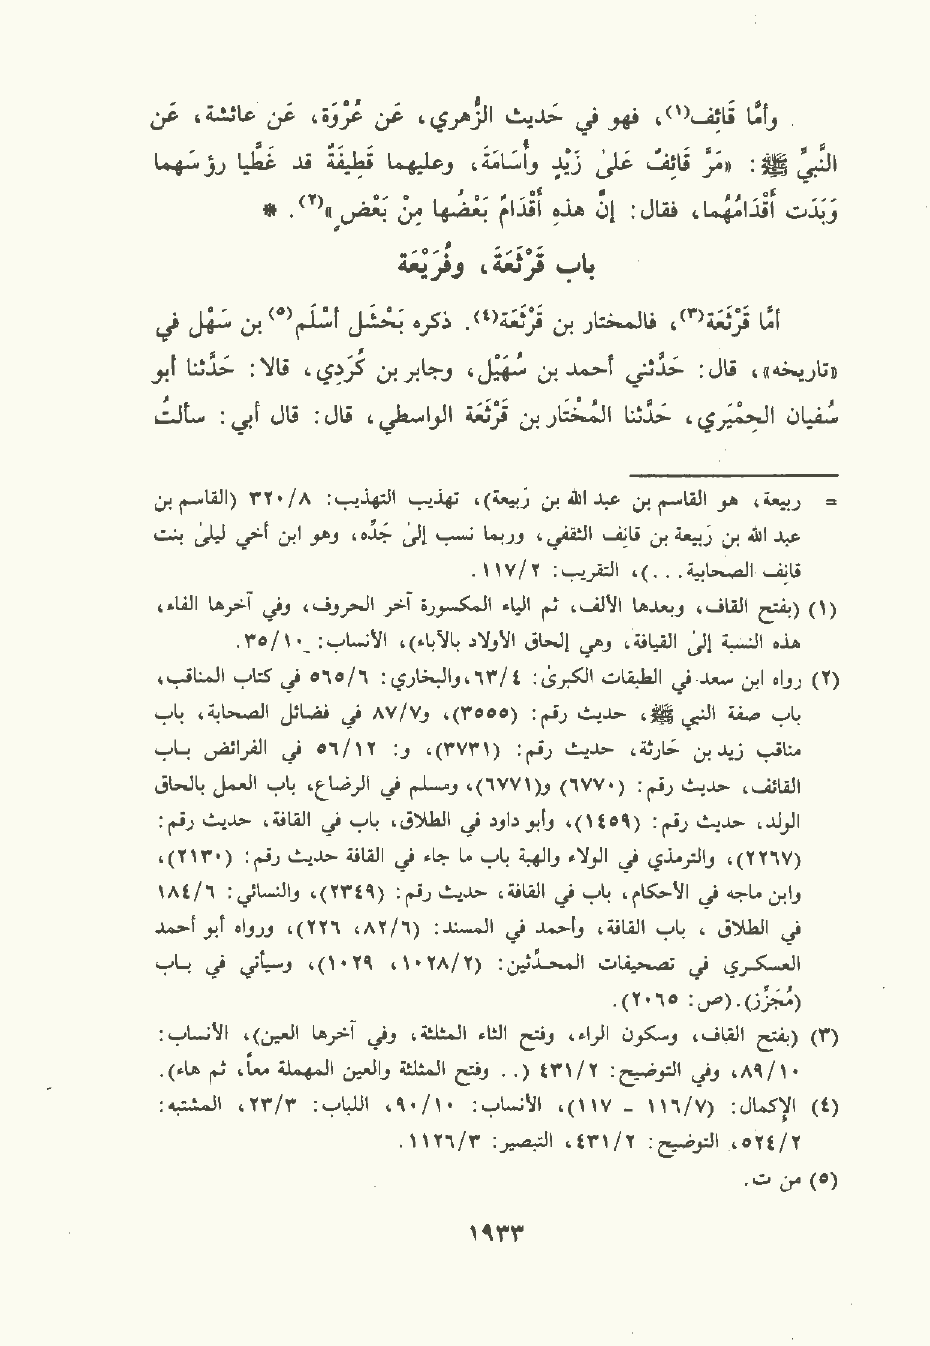 وأمَّا قَائِف(١)، فهو في حَديث الزُّهري، عَن عُرْوَة، عَن عائشة، عَن
النَّبيِّ ﷺ: «مَرَّ قَائِفٌ علىٰ زَيْدٍ وأُسَامَةَ، وعليهما قَطِيفَةٌ قد غَطَّيا رؤسَهما
وَبَدَت أقْدَامُهُما، فقال: إنَّ هذِه أقْدَامٌ بَعْضُها مِنْ بَعْضٍ»(٢). *
باب قَرْثَعَةَ، وفُرَيْعَة
أمَّا قَرْثَعَة(٣)، فالمختار بن قَرْثَعَة(٤). ذكره بَحْشَل أسْلَم(٥) بن سَهْل في
«تاريخه»، قال: حَدَّثني أحمد بن سُهَيْل، وجابر بن كُرَدِي، قالا: حَدَّثنا أبو
سُفيان الحِمْيَري، حَدَّثنا المُخْتَار بن قَرْثَعَة الواسطي، قال: قال أبي: سألتُ
= ربيعة، هو القاسم بن عبد الله بن رَبيعة)، تهذيب التهذيب: ٣٢٠/٨ (القاسم بن
عبد الله بن رَبيعة بن قانِف الثقفي، وربما نسب إلىٰ جَدِّه، وهو ابن أخي ليلىٰ بنت
قانِف الصحابية...)، التقريب: ١١٧/٢.
(١) (بفتح القاف، وبعدها الألف، ثم الياء المكسورة آخر الحروف، وفي آخرها الفاء،
هذه النسبة إلىٰ القيافة، وهي إلحاق الأولاد بالآباء)، الأنساب: ٣٥/١٠.
(٢) رواه ابن سعد في الطبقات الكبرىٰ: ٦٣/٤، والبخاري: ٥٦٥/٦ في كتاب المناقب،
باب صفة النبي ﷺ، حديث رقم: (٣٥٥٥)، و٨٧/٧ في فضائل الصحابة، باب
مناقب زيد بن حَارثة، حديث رقم: (٣٧٣١)، و: ٥٦/١٢ في الفرائض باب
القائف، حديث رقم: (٦٧٧٠) و(٦٧٧١)، ومسلم في الرضاع، باب العمل بالحاق
الولد، حديث رقم: (١٤٥٩)، وأبو داود في الطلاق، باب في القافة، حديث رقم:
(٢٢٦٧)، والترمذي في الولاء والهبة باب ما جاء في القافة حديث رقم: (٢١٣٠)،
وابن ماجه في الأحكام، باب في القافة، حديث رقم: (٢٣٤٩)، والنسائي: ١٨٤/٦
في الطلاق ، باب القافة، وأحمد في المسند: (٨٢/٦، ٢٢٦)، ورواه أبو أحمد
العسكري في تصحيفات المحدِّثين: (١٠٢٨/٢، ١٠٢٩)، وسيأتي في باب
(مُجَزِّز). (ص: ٢٠٦٥).
(٣) (بفتح القاف، وسكون الراء، وفتح الثاء المثلثة، وفي آخرها العين)، الأنساب:
٨٩/١٠، وفي التوضيح: ٤٣١/٢ (.. وفتح المثلثة والعين المهملة معاً، ثم هاء).
(٤) الإكمال: (١١٦/٧ - ١١٧)، الأنساب: ٩٠/١٠، اللباب: ٢٣/٣، المشتبه:
٥٢٤/٢، التوضيح: ٤٣١/٢، التبصير: ١١٢٦/٣.
(٥) من ت.
١٩٣٣